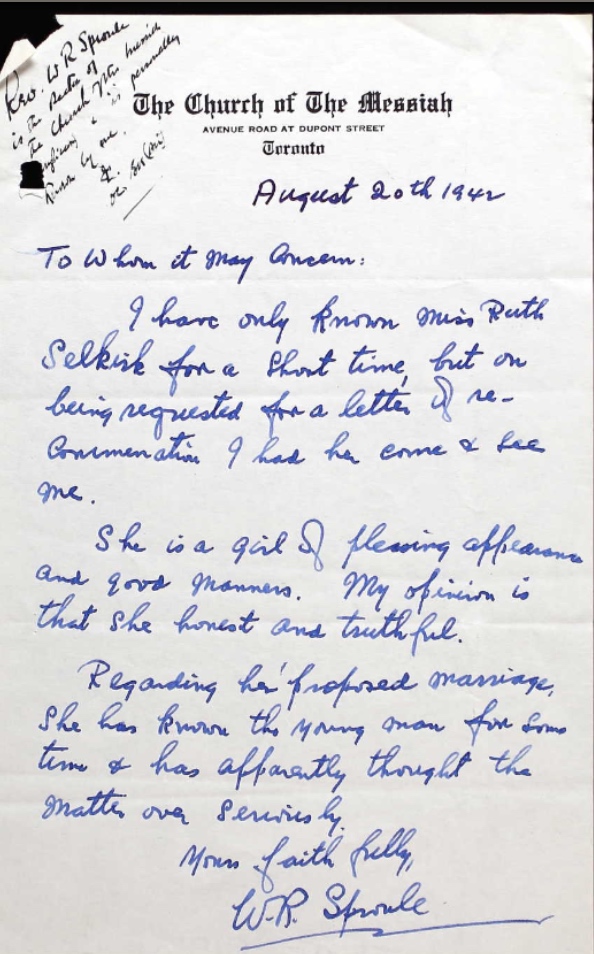 Rev. W R Sproule
is the Rector of
the Church of the Messiah
(Anglican) & is personally
known by me.
The Church of The Messiah
AVENUE ROAD AT DUPONT STREET
Toronto
August 20th 1942
To Whom it May Concern:
I have only known Miss Ruth
Selkirk for a short time, but on
being requested for a letter of re-
commenation I had her come & see
me.
She is a girl of pleasing appearance
and good manners. My opinion is
that she honest and truthful.
Regarding her proposed marriage,
she has known the young man for some
time & has apparently thought the
matter over seriously.
Yours faithfully,
W.R. Sproule